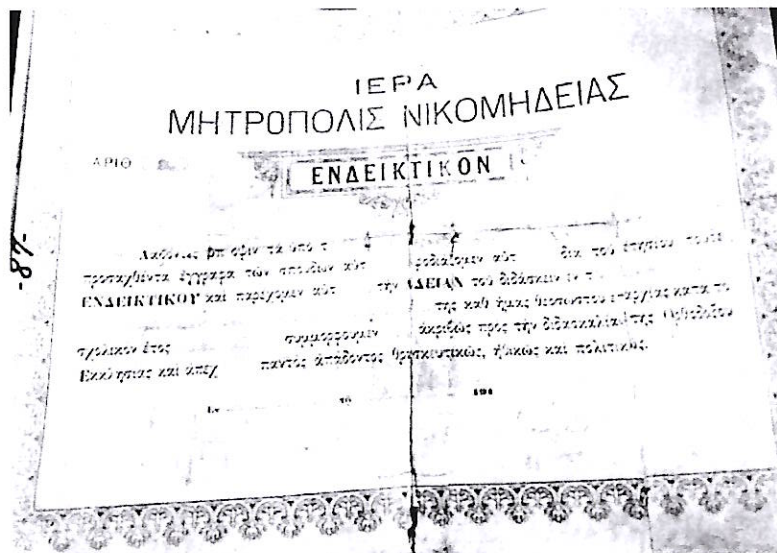 -87-
ΙΕΡΑ
ΜΗΤΡΟΠΟΛΙΣ ΝΙΚΟΜΗΔΕΙΑΣ
ΑΡΙΘ
ΕΝΔΕΙΚΤΙΚΟΝ
ὑπὸ τ αὐτ διὰ τοῦ ἐτησίου
προσαχθέντα ἔγγραφα τῶν σπουδῶν αὐτ
ΕΝΔΕΙΚΤΙΚΟΥ καὶ παρέχομεν αὐτ τὴν ΑΔΕΙΑΝ τοῦ διδάσκειν ἐν τ
τῆς καθ' ἡμᾶς θεοσώστου ἐπαρχίας κατὰ τὸ
σχολικὸν ἔτος συμμορφουμεν ἀκριβῶς πρὸς τὴν διδασκαλίαν τῆς Ὀρθοδόξου
Ἐκκλησίας καὶ ἀπεχ παντὸς ἀπάδοντος θρησκευτικῶς, ἠθικῶς καὶ πολιτικῶς.
Ἐν τῇ 191